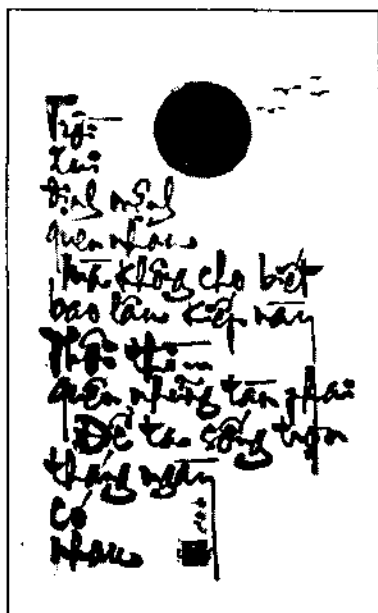 Trời
xui
định mệnh
quen nhau
mà không cho biết
bao lâu kiếp này
Thôi thì
quên những tàn phai
Để ta sống trọn
tháng ngày
có
nhau